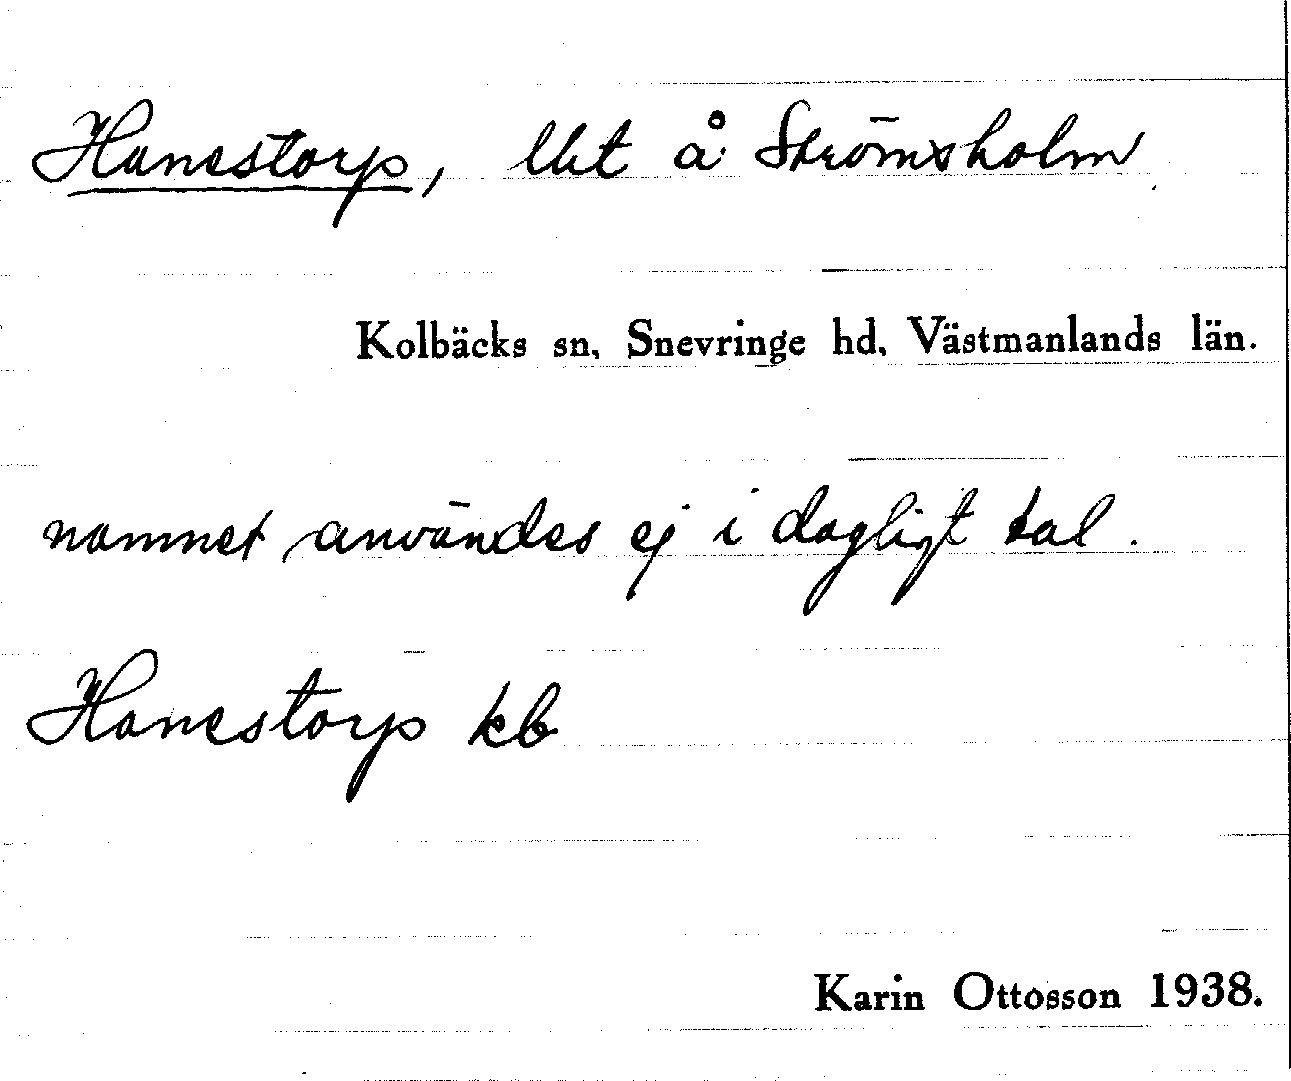 Hanestorp, lht å Strömsholm
Kolbäcks sn, Snevringe hd, Västmanlands län.
namnet användes ej i dagligt tal.
Hanestorp kb
Karin Ottosson 1938.